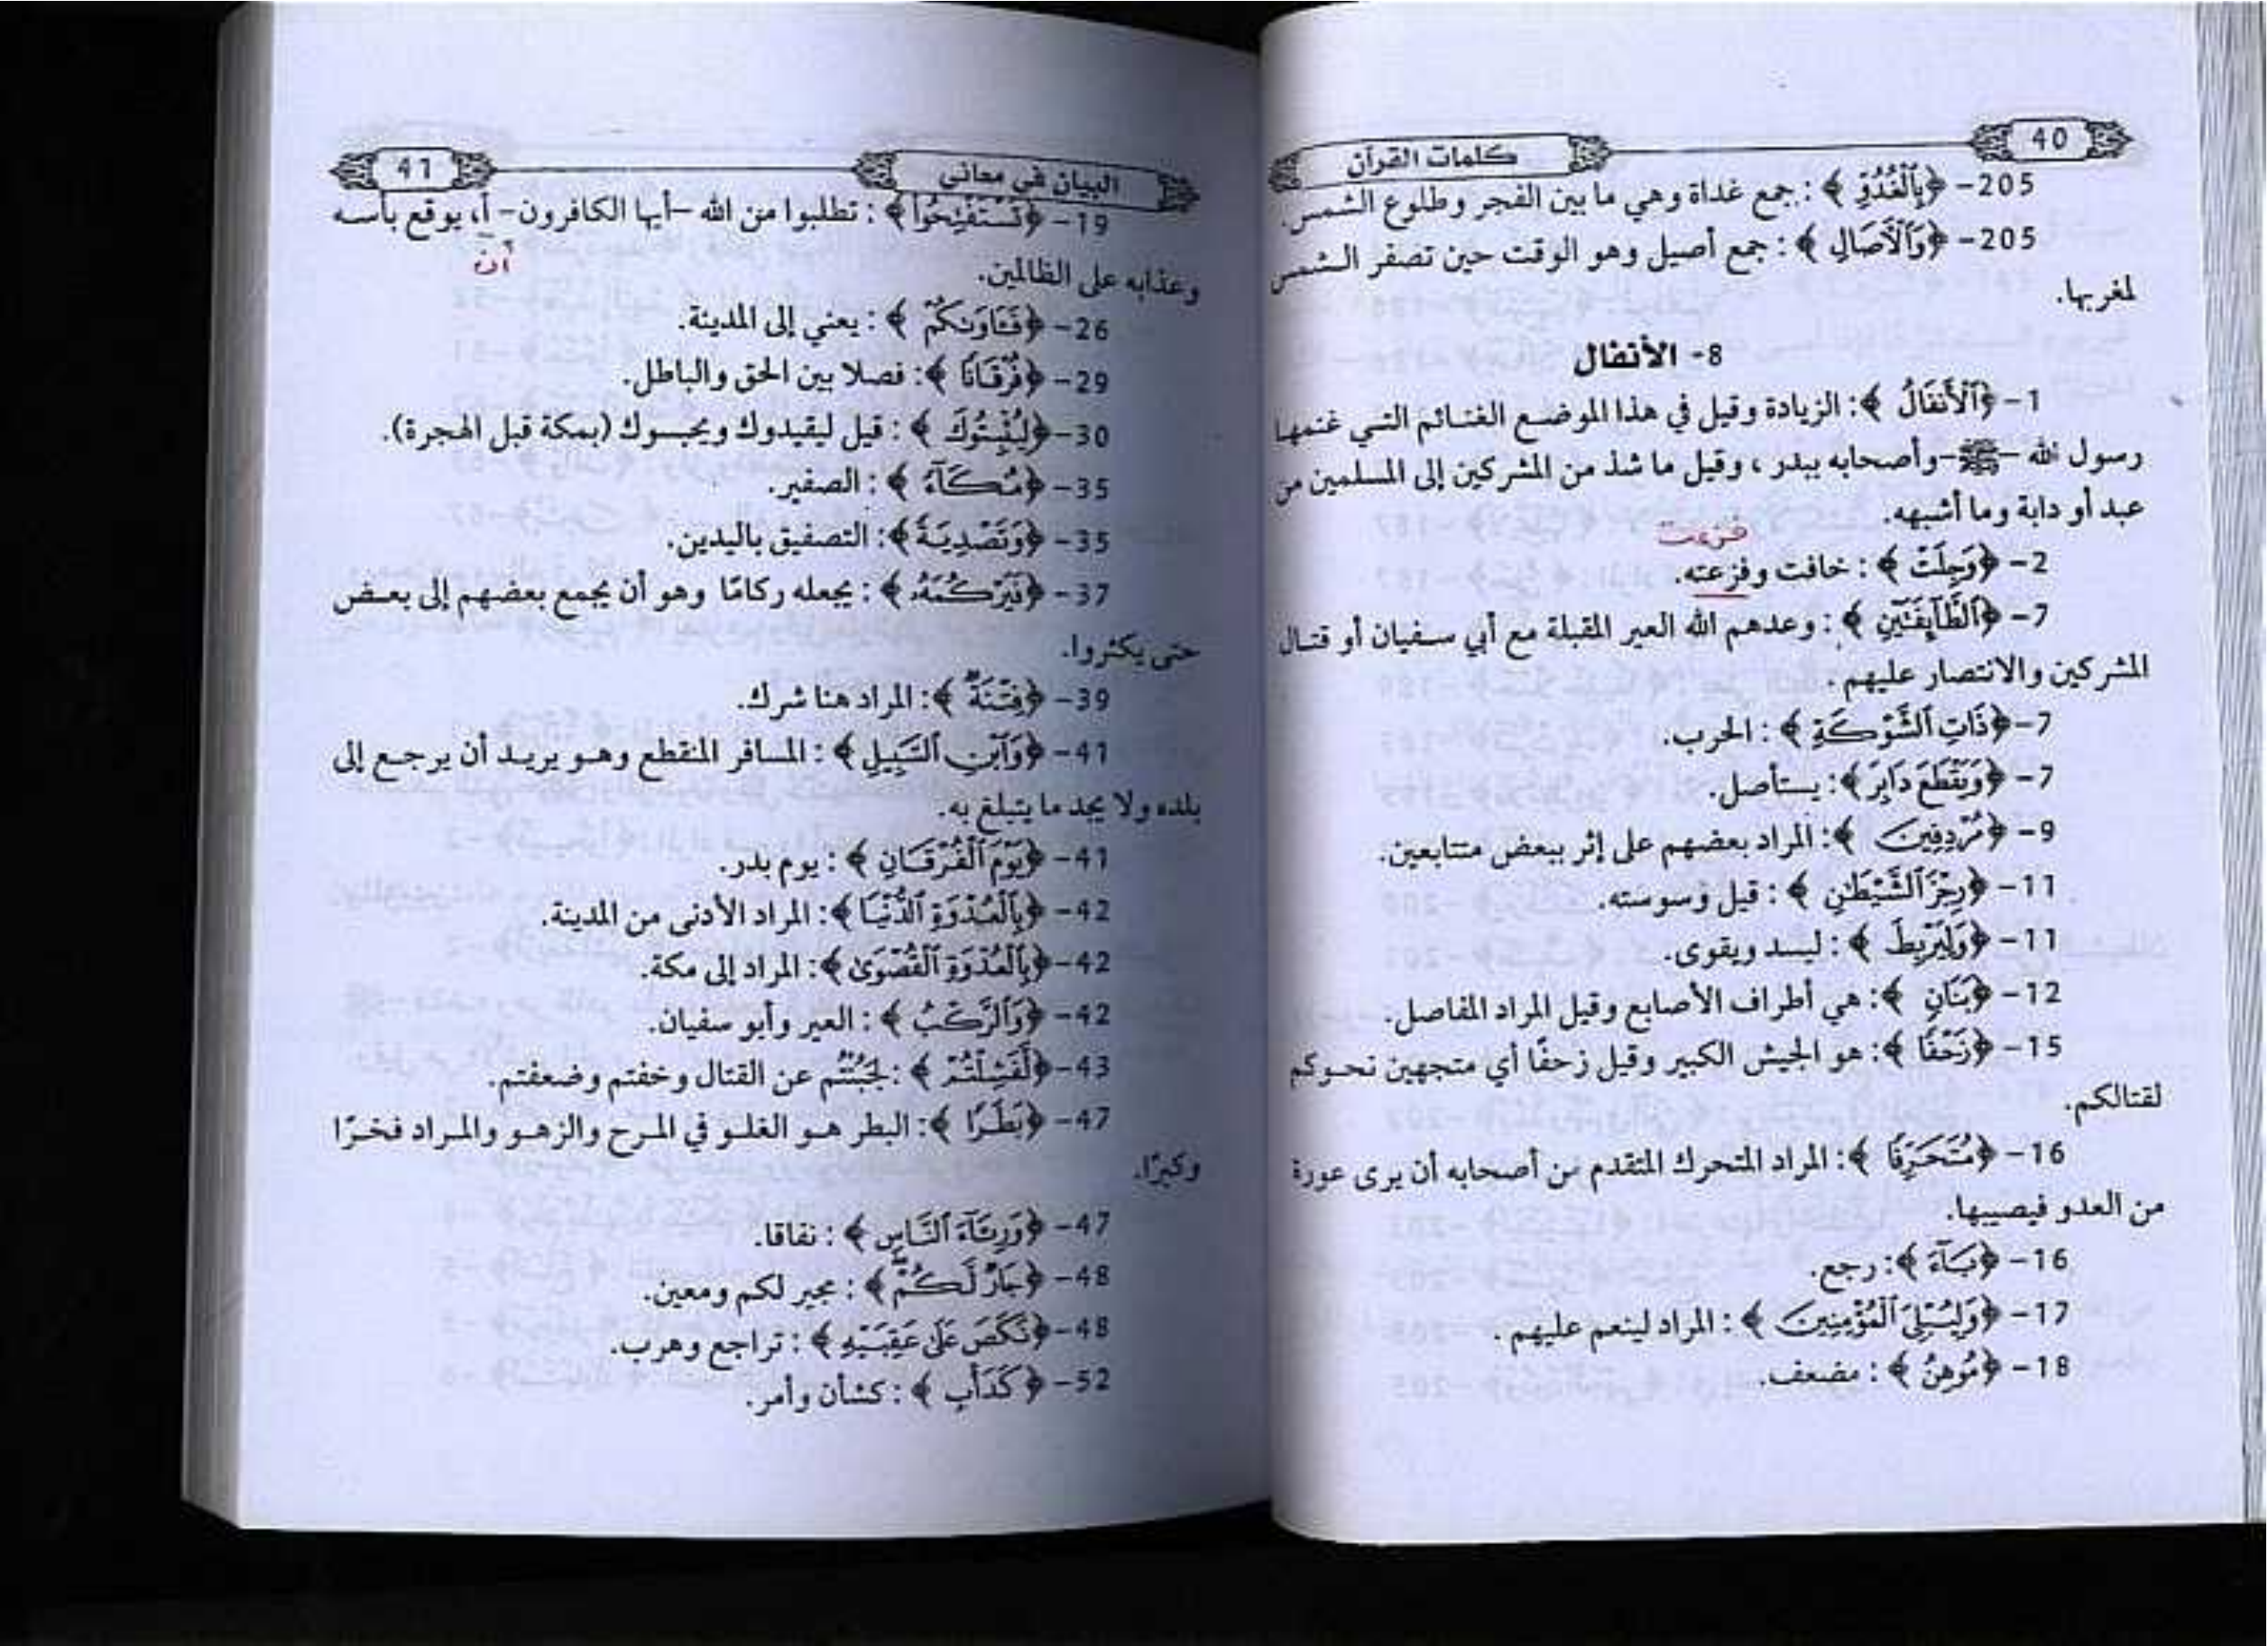 40
كلمات القرآن
205- ﴿بِٱلْغُدُوِّ﴾: جمع غداة وهي ما بين الفجر وطلوع الشمس.
205- ﴿وَٱلْآصَالِ﴾: جمع أصيل وهو الوقت حين تصفر الشمس
لمغربها.
8- الأنفال
1- ﴿ٱلْأَنفَالُ﴾: الزيادة وقيل في هذا الموضع الغنائم التي غنمها
رسول الله -ﷺ- وأصحابه ببدر، وقيل ما شذ من المشركين إلى المسلمين من
عبد أو دابة وما أشبهه.
فزعت
2- ﴿وَجِلَتْ﴾: خافت وفزعته.
7- ﴿ٱلطَّآئِفَتَيْنِ﴾: وعدهم الله العير المقبلة مع أبي سفيان أو قتال
المشركين والانتصار عليهم.
7- ﴿ذَاتِ ٱلشَّوْكَةِ﴾: الحرب.
7- ﴿وَيَقْطَعَ دَابِرَ﴾: يستأصل.
9- ﴿مُرْدِفِينَ﴾: المراد بعضهم على إثر ببعض متتابعين.
11- ﴿رِجْزَ ٱلشَّيْطَٰنِ﴾: قيل وسوسته.
11- ﴿وَلِيَرْبِطَ﴾: ليسد ويقوى.
12- ﴿بَنَانٍ﴾: هي أطراف الأصابع وقيل المراد المفاصل.
15- ﴿زَحْفًا﴾: هو الجيش الكبير وقيل زحفًا أي متجهين نحوكم
لقتالكم.
16- ﴿مُتَحَرِّفًا﴾: المراد المتحرك المتقدم من أصحابه أن يرى عورة
من العدو فيصيبها.
16- ﴿بَآءَ﴾: رجع.
17- ﴿وَلِيُبْلِيَ ٱلْمُؤْمِنِينَ﴾: المراد لينعم عليهم.
18- ﴿مُوهِنُ﴾: مضعف.
البيان في معاني
41
19- ﴿تَسْتَفْتِحُوا۟﴾: تطلبوا من الله -أيها الكافرون- أ، يوقع بأسه
أن
وعذابه على الظالمين.
26- ﴿فَـَٔاوَىٰكُمْ﴾: يعني إلى المدينة.
29- ﴿فُرْقَانًا﴾: فصلا بين الحق والباطل.
30- ﴿لِيُثْبِتُوكَ﴾: قيل ليقيدوك ويحبسوك (بمكة قبل الهجرة).
35- ﴿مُكَآءً﴾: الصفير.
35- ﴿وَتَصْدِيَةً﴾: التصفيق باليدين.
37- ﴿فَيَرْكُمَهُۥ﴾: يجعله ركامًا وهو أن يجمع بعضهم إلى بعض
حتى يكثروا.
39- ﴿فِتْنَةٌ﴾: المراد هنا شرك.
41- ﴿وَٱبْنِ ٱلسَّبِيلِ﴾: المسافر المنقطع وهو يريد أن يرجع إلى
بلده ولا يجد ما يتبلغ به.
41- ﴿يَوْمَ ٱلْفُرْقَانِ﴾: يوم بدر.
42- ﴿بِٱلْعُدْوَةِ ٱلدُّنْيَا﴾: المراد الأدنى من المدينة.
42- ﴿بِٱلْعُدْوَةِ ٱلْقُصْوَىٰ﴾: المراد إلى مكة.
42- ﴿وَٱلرَّكْبُ﴾: العير وأبو سفيان.
43- ﴿لَّفَشِلْتُمْ﴾: لجَبُنْتُم عن القتال وخفتم وضعفتم.
47- ﴿بَطَرًا﴾: البطر هو الغلو في المرح والزهو والمراد فخرًا
وكبرًا.
47- ﴿وَرِئَآءَ ٱلنَّاسِ﴾: نفاقا.
48- ﴿جَارٌ لَّكُمْ﴾: مجير لكم ومعين.
48- ﴿نَكَصَ عَلَىٰ عَقِبَيْهِ﴾: تراجع وهرب.
52- ﴿كَدَأْبِ﴾: كشأن وأمر.